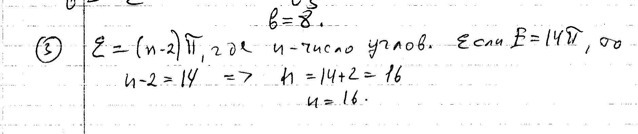 b=8.
③ Σ=(n-2)π, где n-число углов. Если Σ=14π, то
n-2=14 => n=14+2=16
n=16.